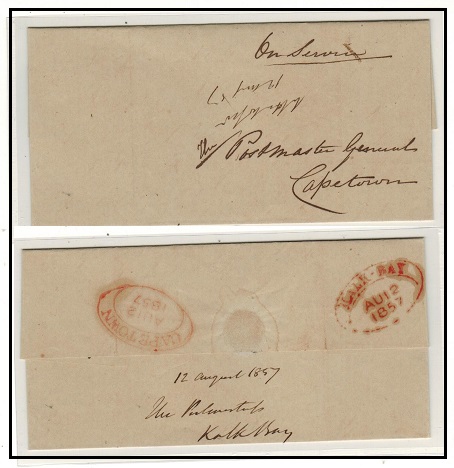 On Service
12 Aug 57
The Postmaster General
Capetown
KALK-BAY
AU 12
1857
CAPE TOWN
AU 12
1857
12 August 1857
The
Kalk Bay